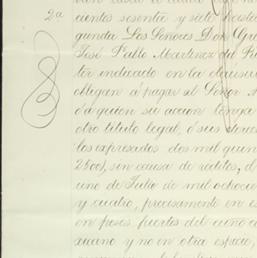 cientos sesenta y siete hasta
2a
gunda Los Señores Don Agu
José Pablo Martinez del Rio
ter indicado en la clausula
obligan a pagar al Señor
da quien su accion tenga
otro titulo legal, ó sus
los expresados dos mil quin
2500), sin causa de réditos, d
uno de Julio de mil ochocien
y cuatro, precisamente en es
en pesos fuertes del cuño
xicano y no en otra especie,